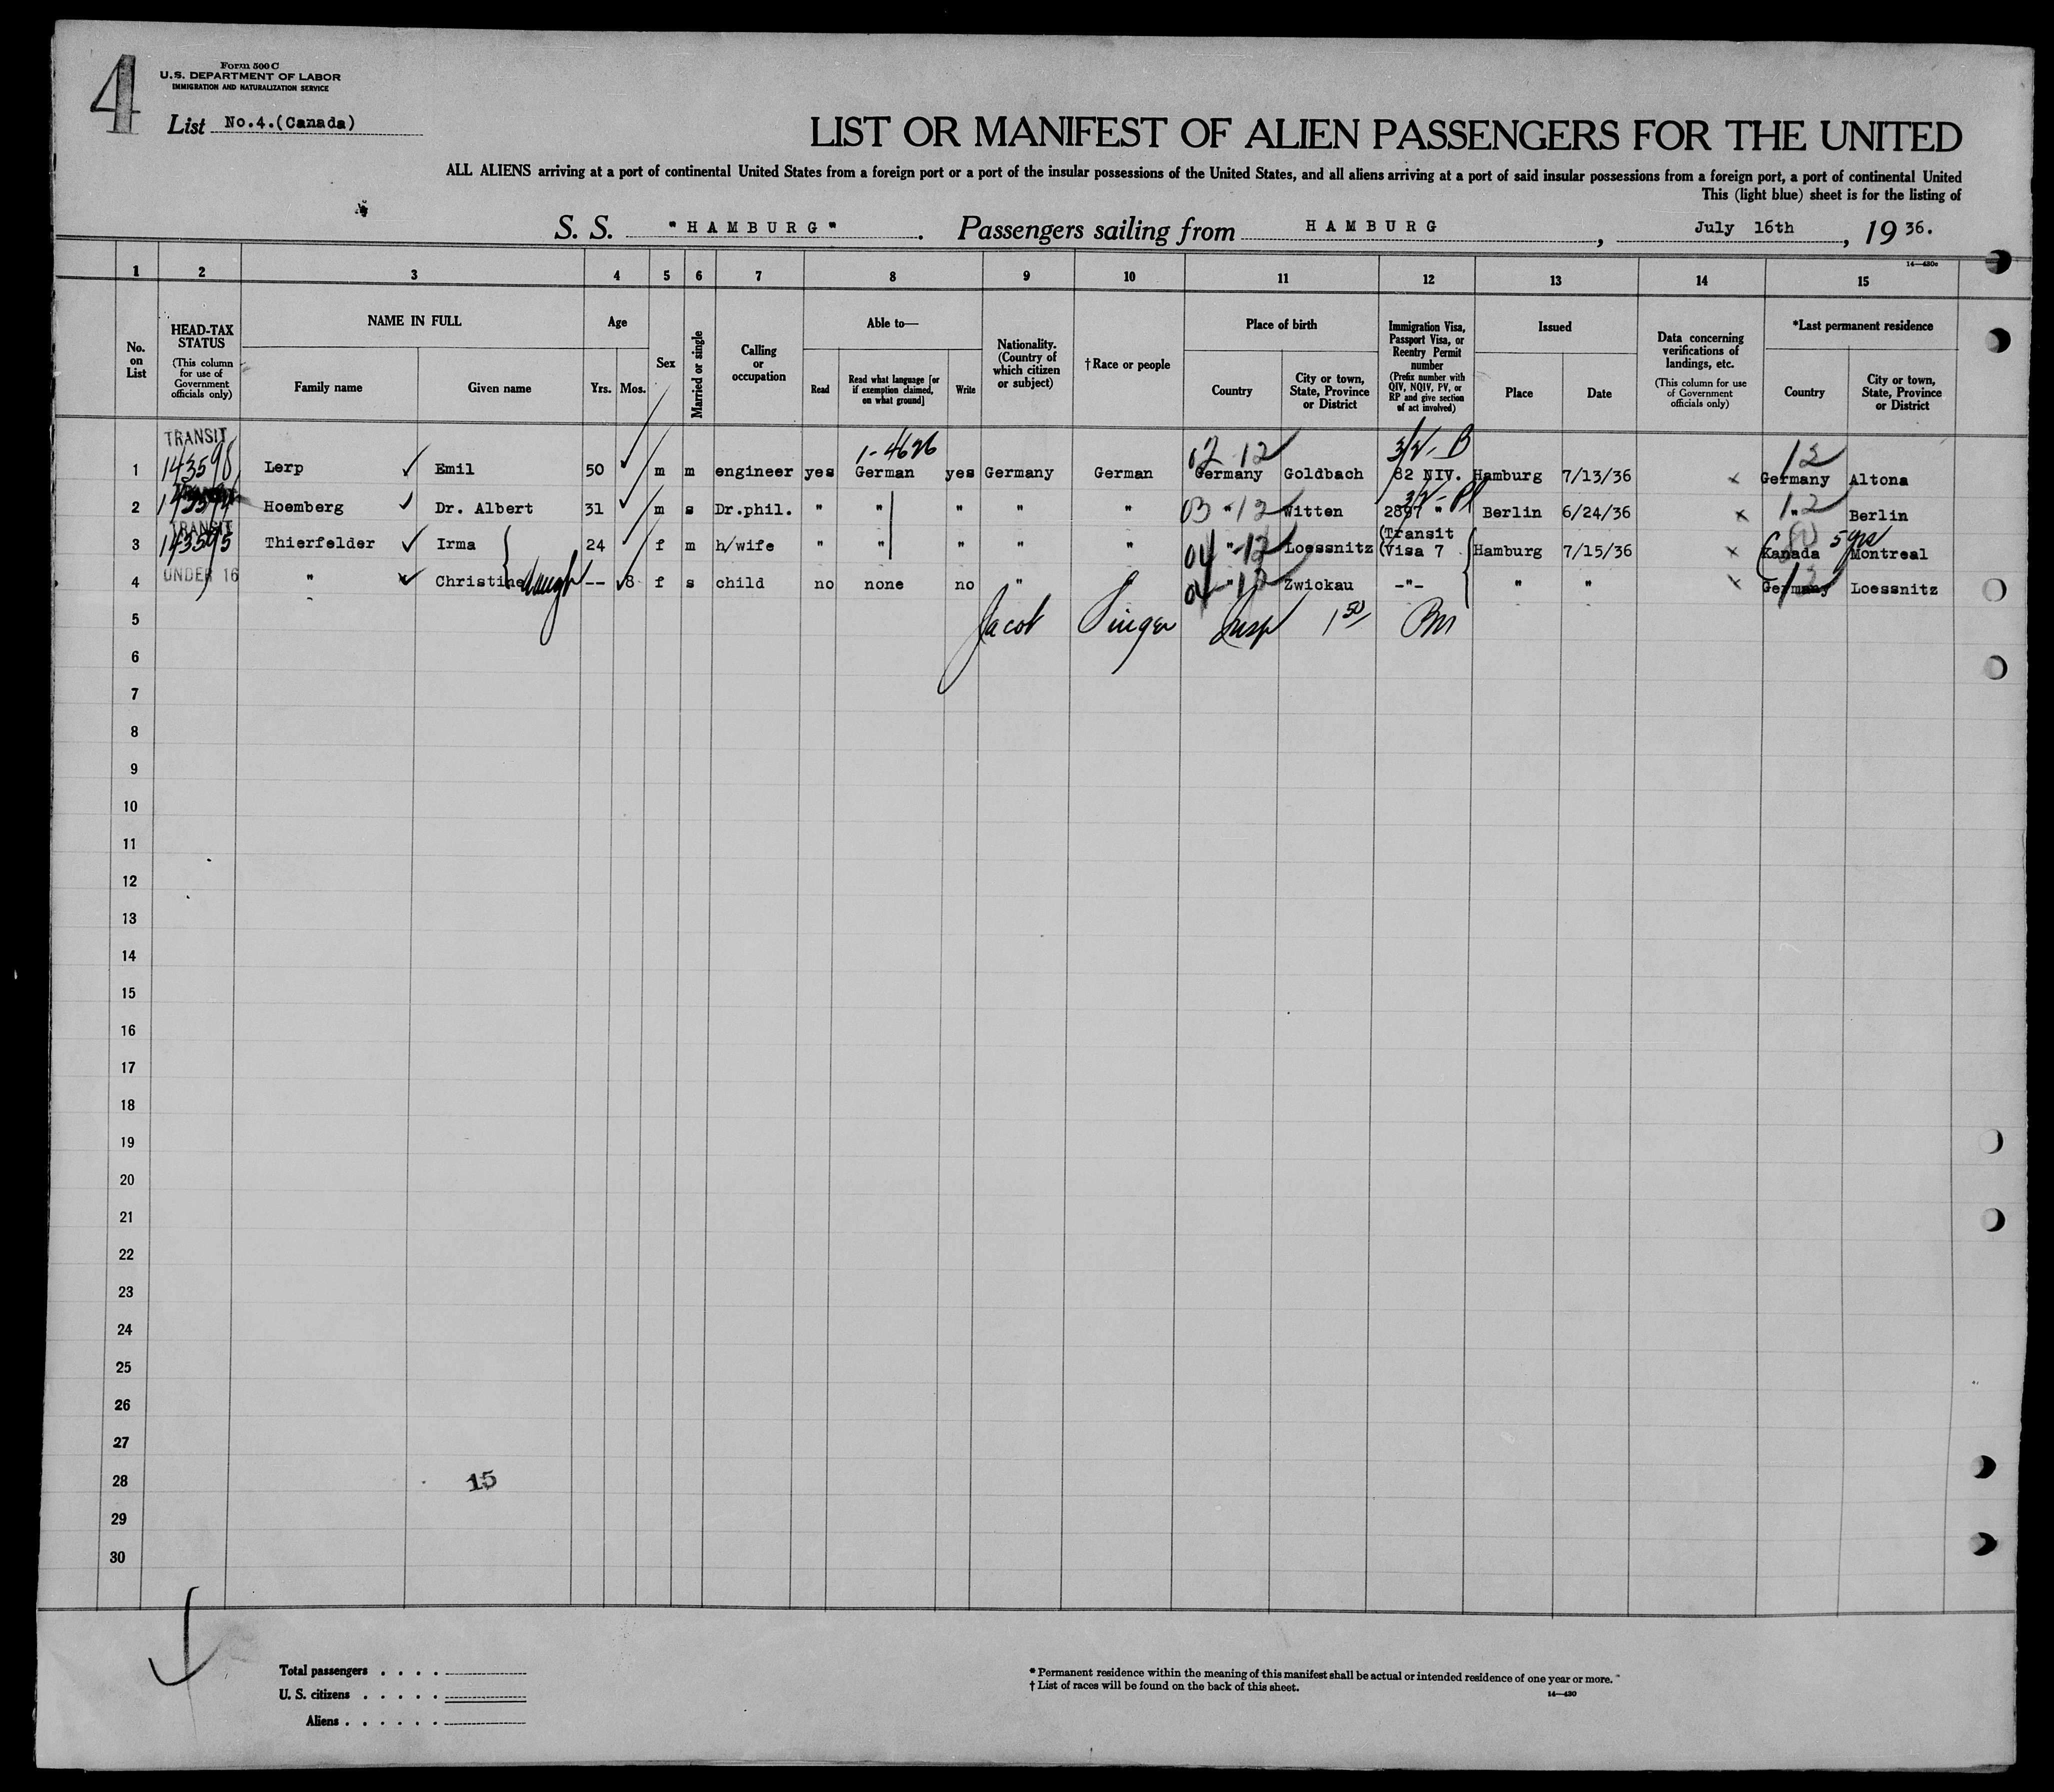 4
Form 500 C
U.S. DEPARTMENT OF LABOR
IMMIGRATION AND NATURALIZATION SERVICE
List No.4.(Canada)
LIST OR MANIFEST OF ALIEN PASSENGERS FOR THE UNITED
ALL ALIENS arriving at a port of continental United States from a foreign port or a port of the insular possessions of the United States, and all aliens arriving at a port of said insular possessions from a foreign port, a port of continental United
This (light blue) sheet is for the listing of
S. S. "HAMBURG". Passengers sailing from HAMBURG, July 16th, 19 36.
14—430c
1 2 3 4 5 6 7 8 9 10 11 12 13 14 15
No. on List
HEAD-TAX STATUS
(This column for use of Government officials only)
NAME IN FULL
Family name
Given name
Age
Yrs.
Mos.
Sex
Married or single
Calling or occupation
Able to—
Read
Read what language [or if exemption claimed, on what ground]
Write
Nationality. (Country of which citizen or subject)
†Race or people
Place of birth
Country
City or town, State, Province or District
Immigration Visa, Passport Visa, or Reentry Permit number
(Prefix number with QIV, NQIV, PV, or RP and give section of act involved)
Issued
Place
Date
Data concerning verifications of landings, etc.
(This column for use of Government officials only)
*Last permanent residence
Country
City or town, State, Province or District
TRANSIT 1-4626 02 12 3/2-B 12
1 143598 Lerp Emil 50 m m engineer yes German yes Germany German Germany Goldbach 82 NIV. Hamburg 7/13/36 x Germany Altona
2 Hoemberg Dr. Albert 31 m s Dr.phil. " " " " " 03 " 12 Witten 2897 " Berlin 6/24/36 x " 12 Berlin
TRANSIT
3 143595 Thierfelder Irma 24 f m h/wife " " " " " 04 " 12 Loessnitz (Transit (Visa 7 Hamburg 7/15/36 x Kanada 5 yrs Montreal
4 UNDER 16 " Christine daugh -- 8 f s child no none no " " 04 " 12 Zwickau -"- " " x Germany 12 Loessnitz
5 Jacob Singer Insp 1 50
6
7
8
9
10
11
12
13
14
15
16
17
18
19
20
21
22
23
24
25
26
27
28 15
29
30
Total passengers . . . .
U. S. citizens . . . . .
Aliens . . . . . .
* Permanent residence within the meaning of this manifest shall be actual or intended residence of one year or more.
† List of races will be found on the back of this sheet.
14—430